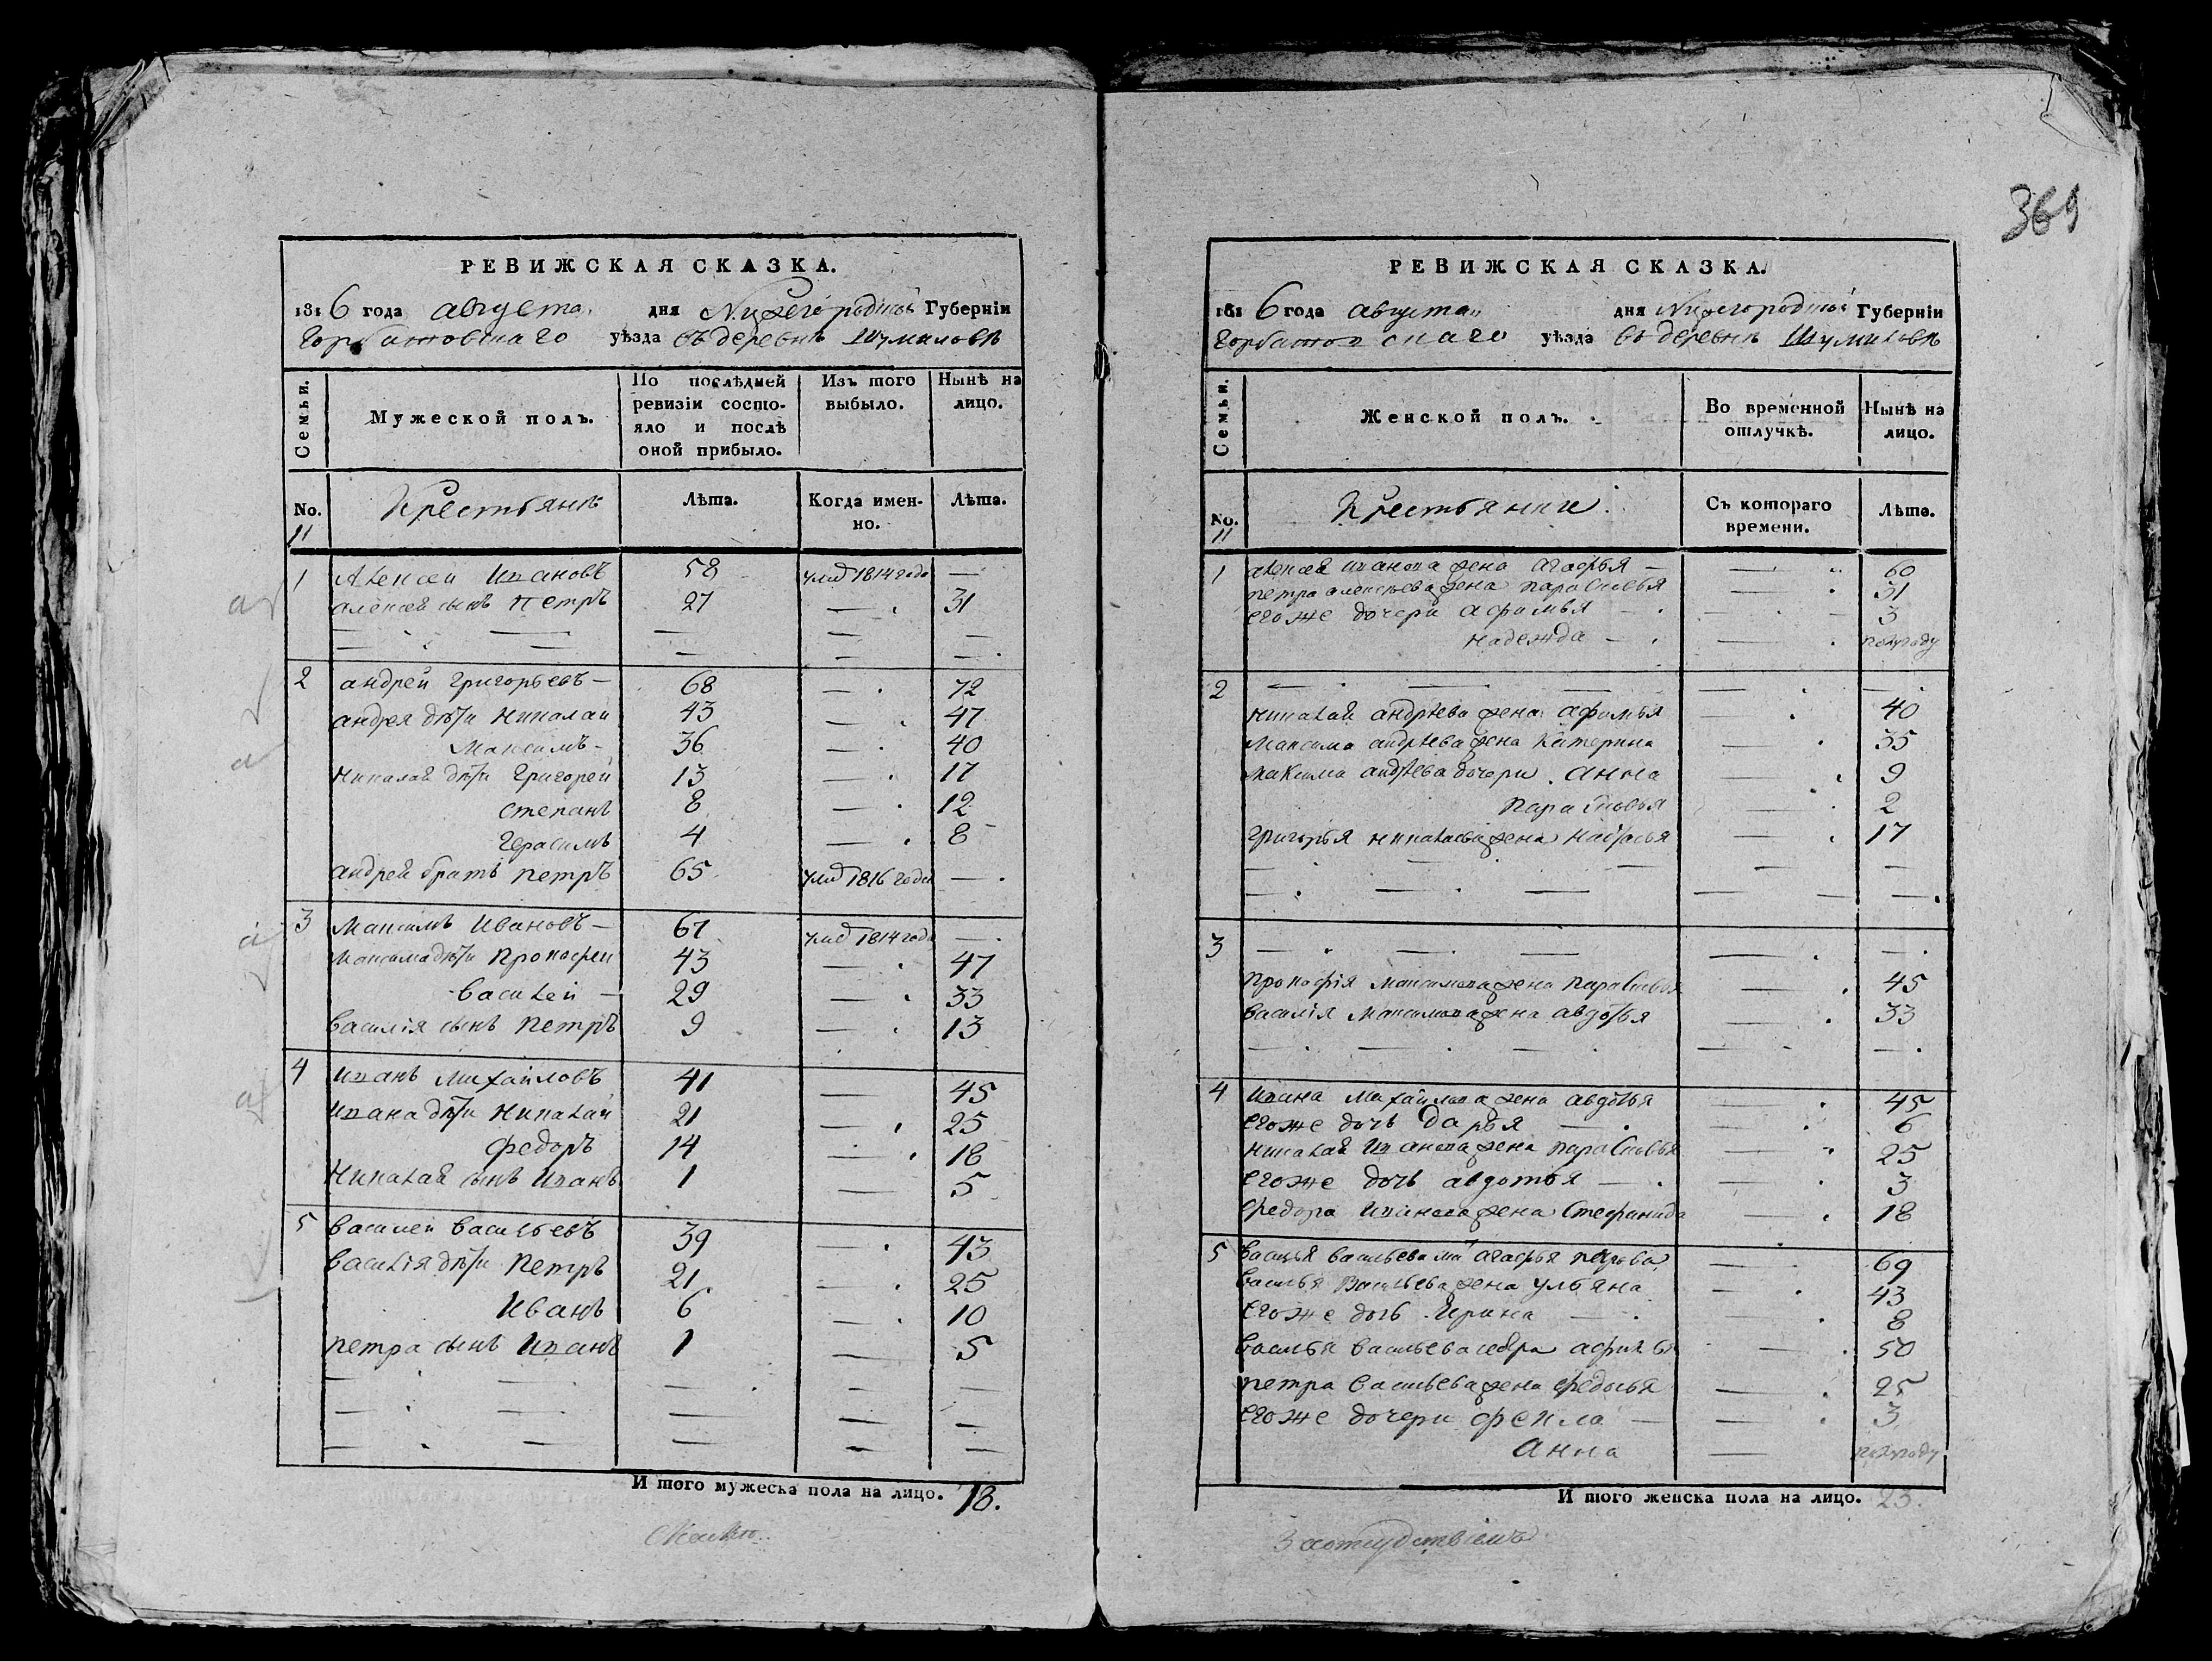 РЕВИЖСКАЯ СКАЗКА.
1816 года августа дня Нижегородской Губерніи
Горбатовскаго уѣзда въ деревнѣ Шумиловѣ
Семьи.
Мужеской полъ.
По послѣдней ревизіи состояло и послѣ оной прибыло.
Изъ того выбыло.
Нынѣ на лицо.
No. 11
Крестьянѣ
Лѣта.
Когда именно.
Лѣта.
1 Алексеи Ивановъ 58 умѣ 1814 года —
алексея сынъ петръ 27 — 31
2 андреи григорьевъ — 68 — 72
андрея дѣти николаи 43 — 47
максимъ — 36 — 40
николая дѣти григореи 13 — 17
степанъ 8 — 12
герасимъ 4 — 8
андрея братъ петръ 65 умѣ 1816 года —
3 максимъ ивановъ — 67 умѣ 1814 года —
максима дѣти прокофеи 43 — 47
василеи — 29 — 33
василія сынъ петръ 9 — 13
4 иванъ михаиловъ 41 — 45
ивана дѣти николаи 21 — 25
федоръ 14 — 18
николая сынъ иванъ 1 — 5
5 василеи васильевъ 39 — 43
василія дѣти петръ 21 — 25
иванъ 6 — 10
петра сынъ иванъ 1 — 5
И того мужеска пола на лицо. 18.
369
РЕВИЖСКАЯ СКАЗКА.
1816 года августа дня Нижегородской Губерніи
Горбатовскаго уѣзда въ деревнѣ Шумиловѣ
Семьи.
Женской полъ.
Во временной отлучкѣ.
Нынѣ на лицо.
No. 11
Крестьянки
Съ котораго времени.
Лѣта.
1 алексея иванова жена агафья — 60
петра алексеева жена парасковья — 31
его же дочери афимья — 3
надежда — полугоду
2
николая андрѣева жена афимья — 40
максима андрѣева жена катерина — 35
максима андрѣева дочери анна — 9
парасковья — 2
григорья николаева жена настасья — 17
3
прокофія максимова жена парасковья — 45
василія максимова жена авдотья — 33
4 ивана михаилова жена авдотья — 45
его же дочь дарья — 6
николая иванова жена парасковья — 25
его же дочь авдотья — 3
федора иванова жена стефанида — 18
5 василья васильева мать агафья петрова — 69
василья васильева жена ульяна — 43
его же дочь ирина — 8
василья васильева сестра афимья 50
петра васильева жена федосья — 25
его же дочери фекла — 3
анна — полугоду
И того женска пола на лицо. 23.